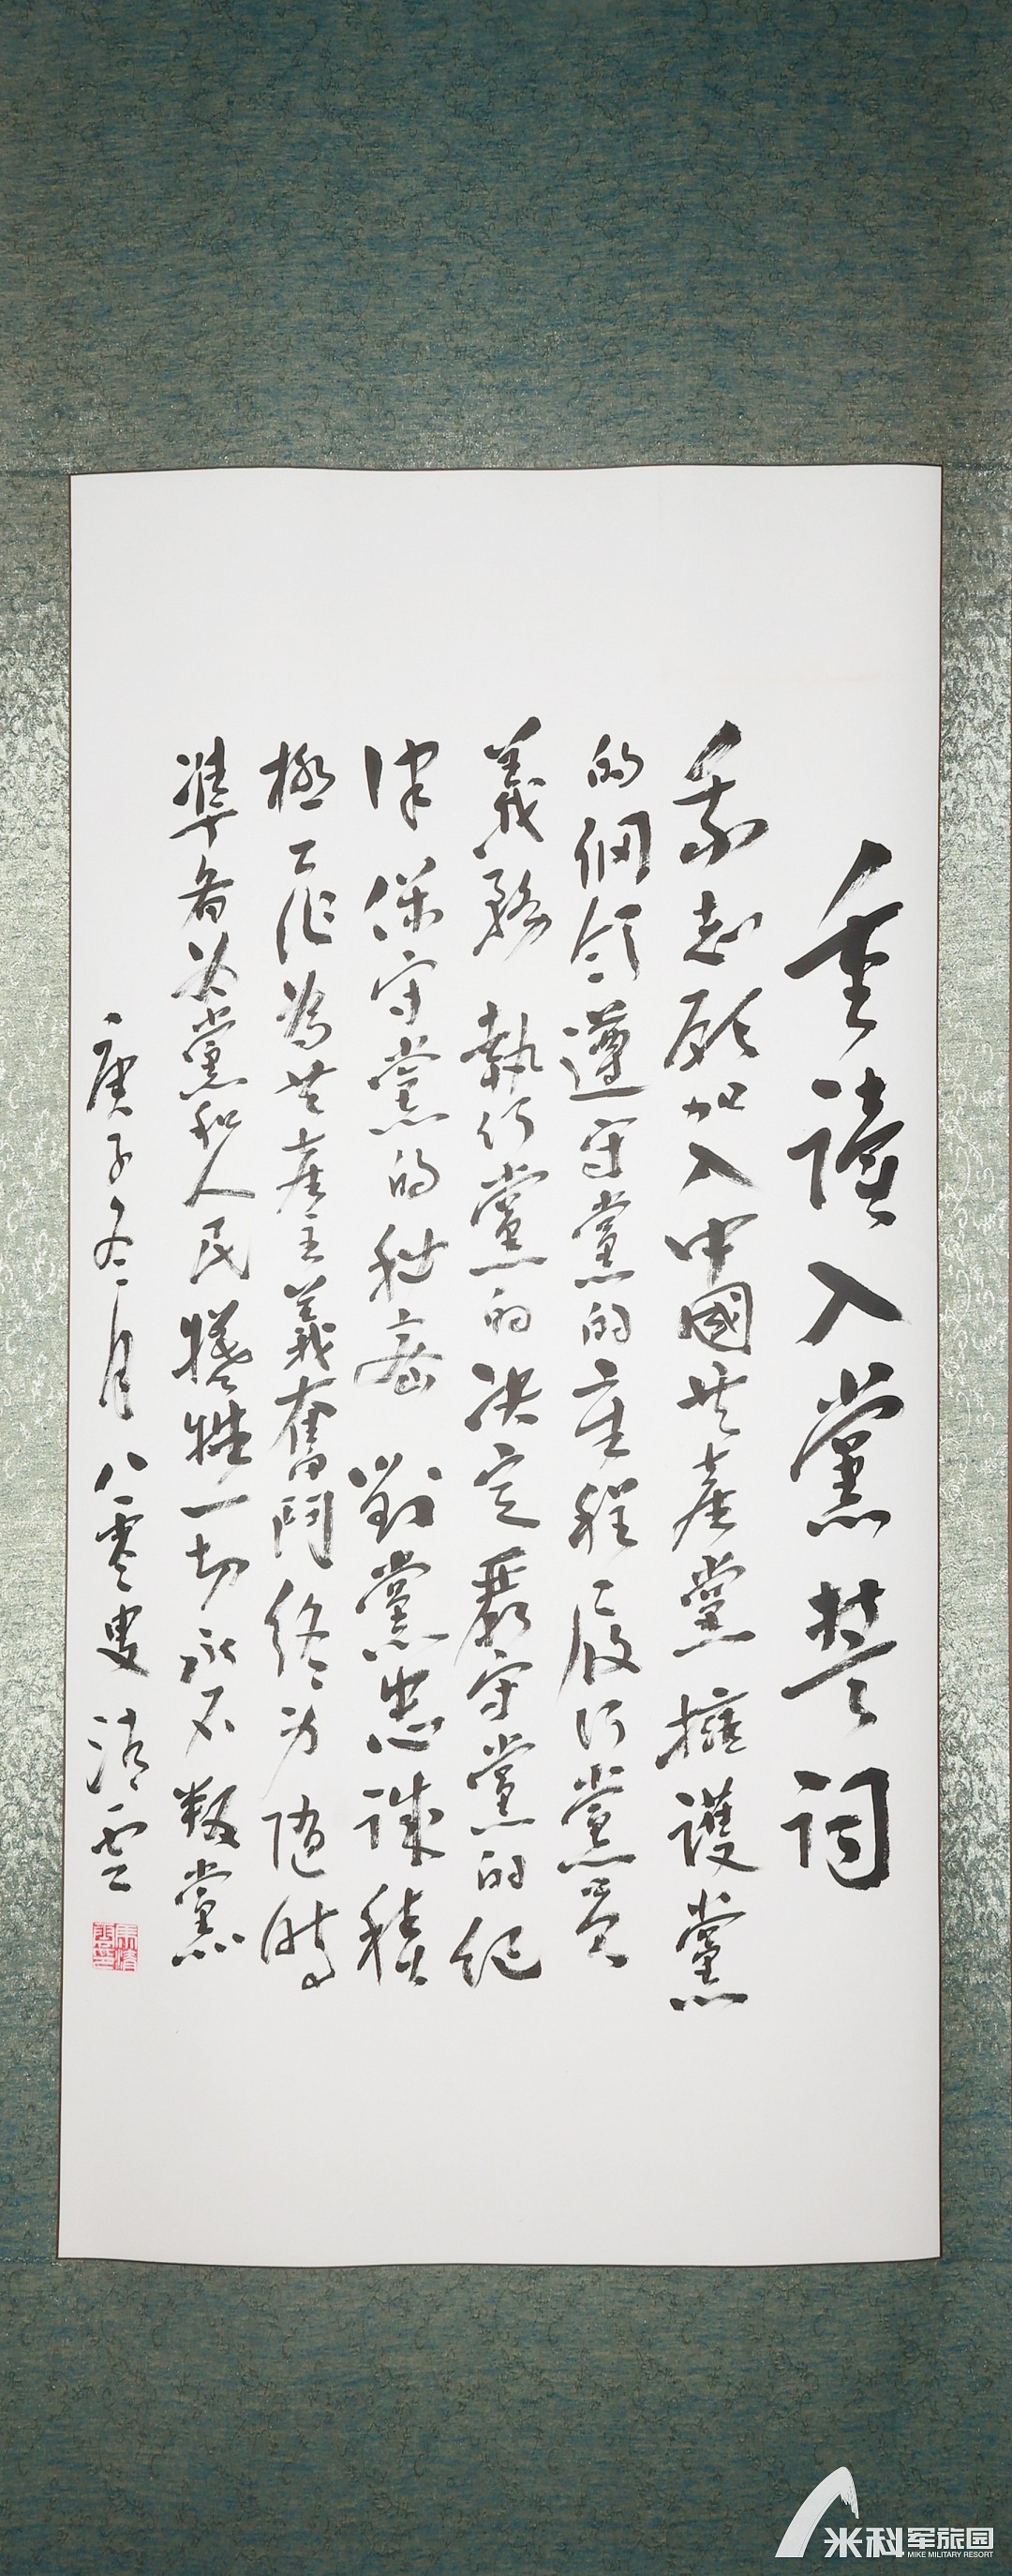 重讀入黨誓词
我志願加入中國共產黨擁護黨
的綱領遵守黨的章程履行黨員
義務執行黨的决定嚴守黨的紀
律保守黨的秘密對黨忠诚積
極工作为共產主義奮鬥終身隨時
準备为黨和人民犧牲一切永不叛黨
庚子冬月八零叟清雲
米科军旅园
MIKE MILITARY RESORT